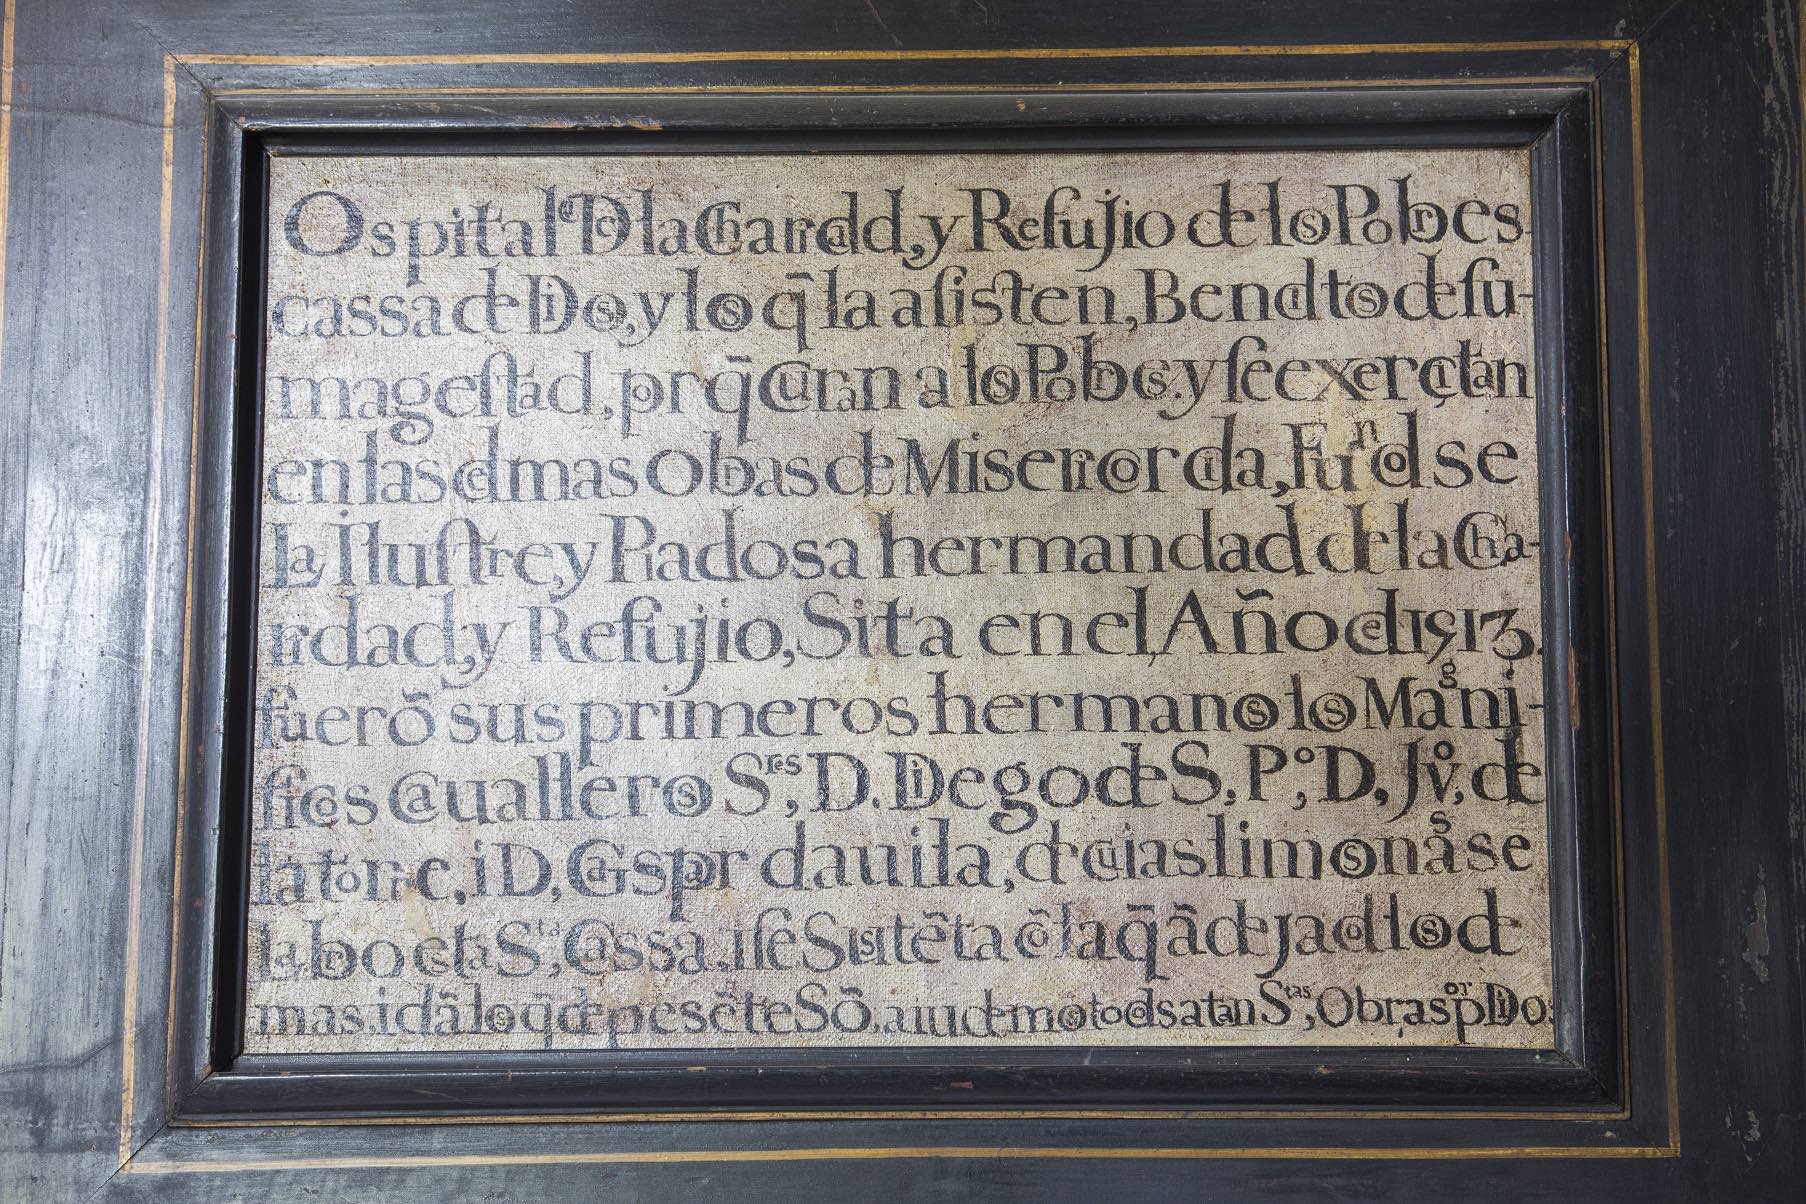 Ospital De la Charidad, y Refujio de los Pobres
cassa de Dios, y los q̄ la asisten, Benditos de su-
magestad, por q̄ Curan a los Pobres. y se exerçitan
en las demas Obras de Misericordia, Fuⁿdose
La Ilustre, y Piadosa hermandad de la Cha-
ridad, y Refujio, Sita en el, Año de 1513.
fuerō sus primeros hermanos los Magni-
ficos Cauallero s Sʳᵉˢ, D. Diego de S. Pº, D, Jvº, de
la torre, i D, Gaspar dauila, de cuias limonˢas se
labro esta Sᵗᵃ, Cassa. i se Sustēta cō la q̄ ā dejado los de
mas. i dā los q̄ de pesēte Sō. aiudemos todos a tan Sᵗᵃˢ, Obras, pᵒʳ Dios